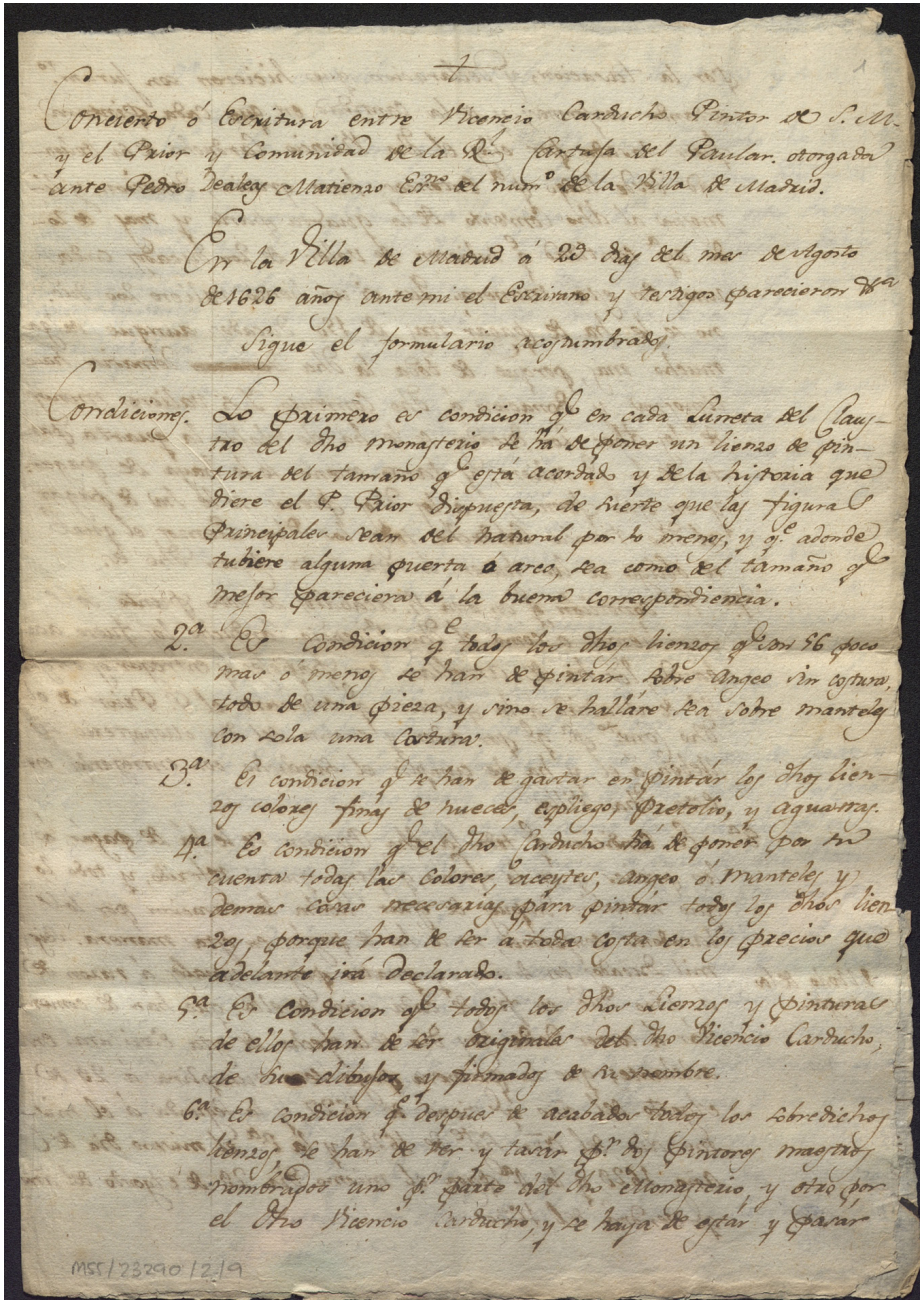 1
+
Concierto ó Escritura entre Vicencio Carducho Pintor de S. M.
y el Prior y Comunidad de la Rl. Cartuja del Paular. otorgada
ante Pedro de Aleas Matienzo Esno. del numo. de la Villa de Madrid.
En la Villa de Madrid á 29 dias del mes de Agosto
de 1626 años ante mi el Escrivano y testigos parecieron
Sigue el formulario acostumbrado.
Condiciones. Lo primero es condicion qe. en cada Luneta del Claus-
tro del dho monasterio se há de poner un lienzo de pin-
tura del tamaño qe. está acordado y de la historia que
diere el P. Prior dispuesta, de suerte que las figuras
Principales sean del natural por lo menos, y qe. adonde
tubiere alguna puerta ó arco, sea como del tamaño qe.
mejor pareciera á la buena correspondiencia.
2.a Es condicion qe. todos los dhos lienzos qe. son 56 poco
mas ó menos se han de pintár sobre angeo sin costura,
todo de una pieza, y sino se halláre sea sobre manteles
con sola una costura.
3.a Es condicion qe. se han de gastar en pintár los dhos lien-
zos colores finas de nueces, espliego, pretolio, y aguarras.
4.a Es condicion qe. el dho Carducho há de ponér por su
cuenta todas las colores, aceytes, angeo ó manteles y
demas cosas necesarias para pintar todos los dhos lien-
zos, porque han de ser á toda costa en los precios que
adelante irá declarado.
5.a Es condicion qe. todos los dhos Lienzos y pinturas
de ellos han de ser originales del dho Vicencio Carducho,
de su dibujo, y firmados de su nombre.
6.a Es condicion qe. despues de acabados todos los sobredichos
lienzos se han de ver y tasár pr. dos pintores maestros
nombrados uno pr. parte del dho Monasterio, y otro por
el dho Vicencio Carducho, y se haya de estár y pasár
MSS/23290/2/9